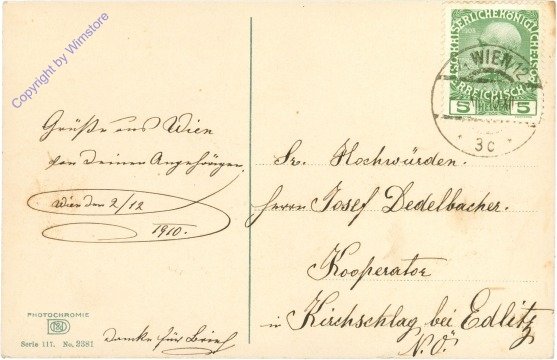 Copyright by Wimstore
Grüße aus Wien
von Deinen Angehörigen
Wien den 2/12
1910.
Danke für Brief
PHOTOCHROMIE
Serie 111. No. 2381
KAISERLICHE KÖNIGLICHE
ÖSTERREICHISCHE
5 5
WIEN
3c
Sr. Hochwürden.
Herrn Josef Dedelbacher.
Kooperator
in Kirchschlag bei Edlitz
N. Ö.